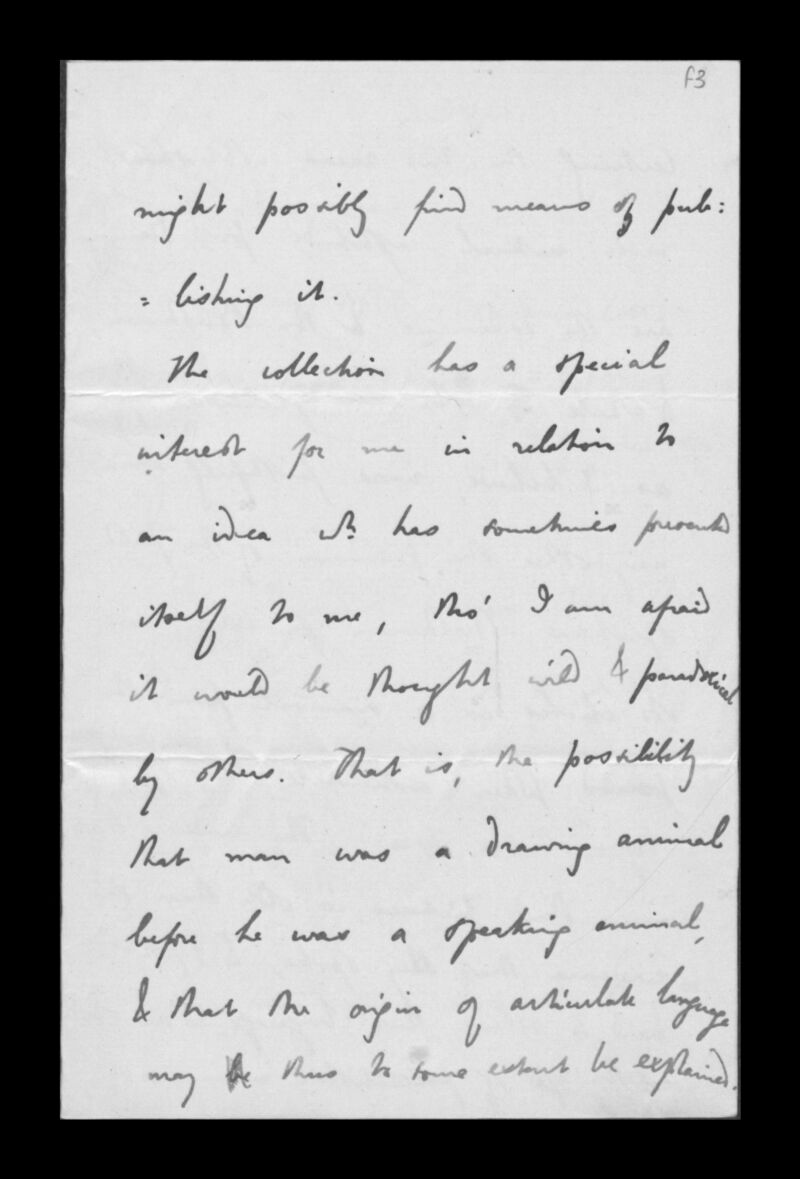 f3
might possibly find means of pub=
= lishing it.
The collection has a special
interest for me in relation to
an idea wh has sometimes presented
itself to me, tho' I am afraid
it would be thought wild & paradoxical
by others. That is, the possibility
that man was a drawing animal
before he was a speaking animal,
& that the origin of articulate language
may thus to some extent be explained.